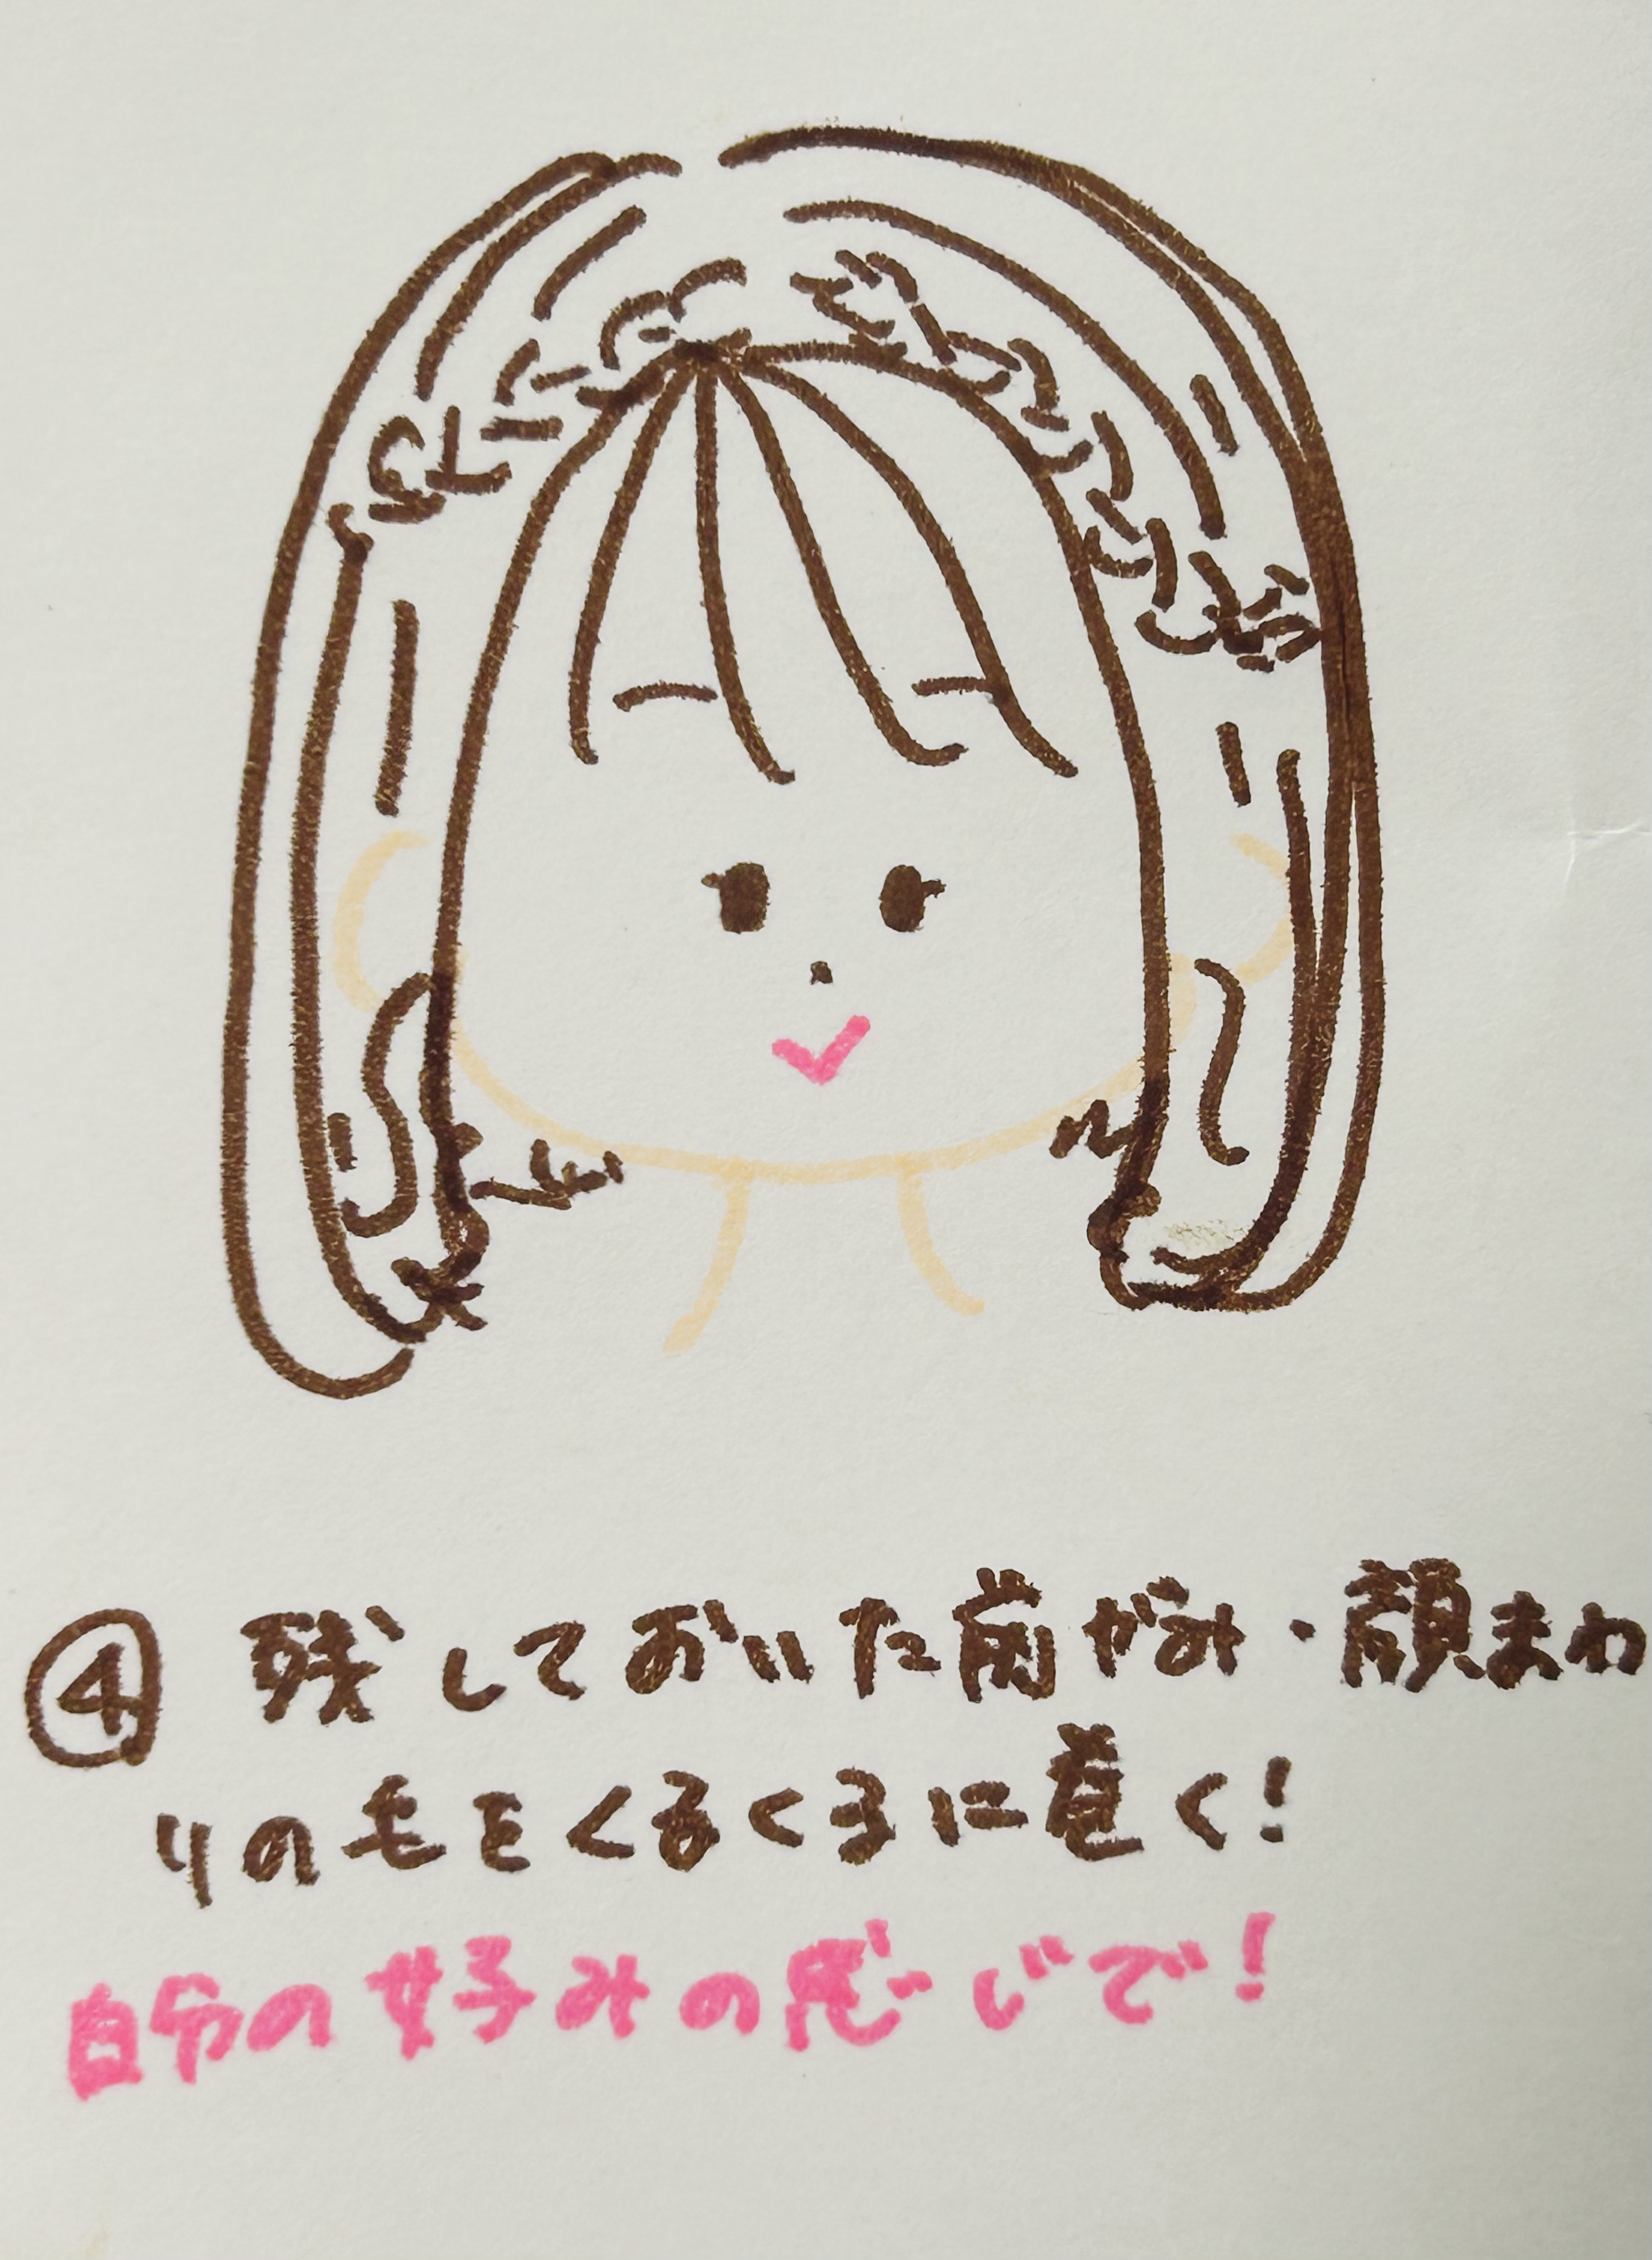 ④ 残しておいた前がみ・顔まわ
りの毛をくるくるに巻く!
自分の好みの感じで!